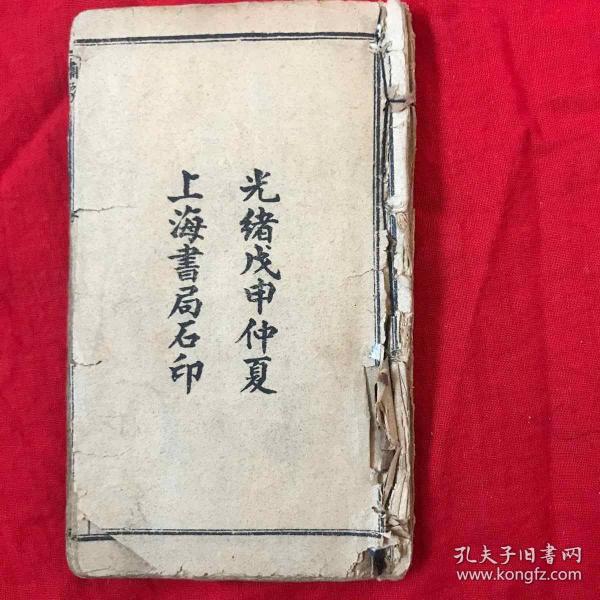 光緒戊申仲夏
上海書局石印
孔夫子旧书网
www.kongfz.com